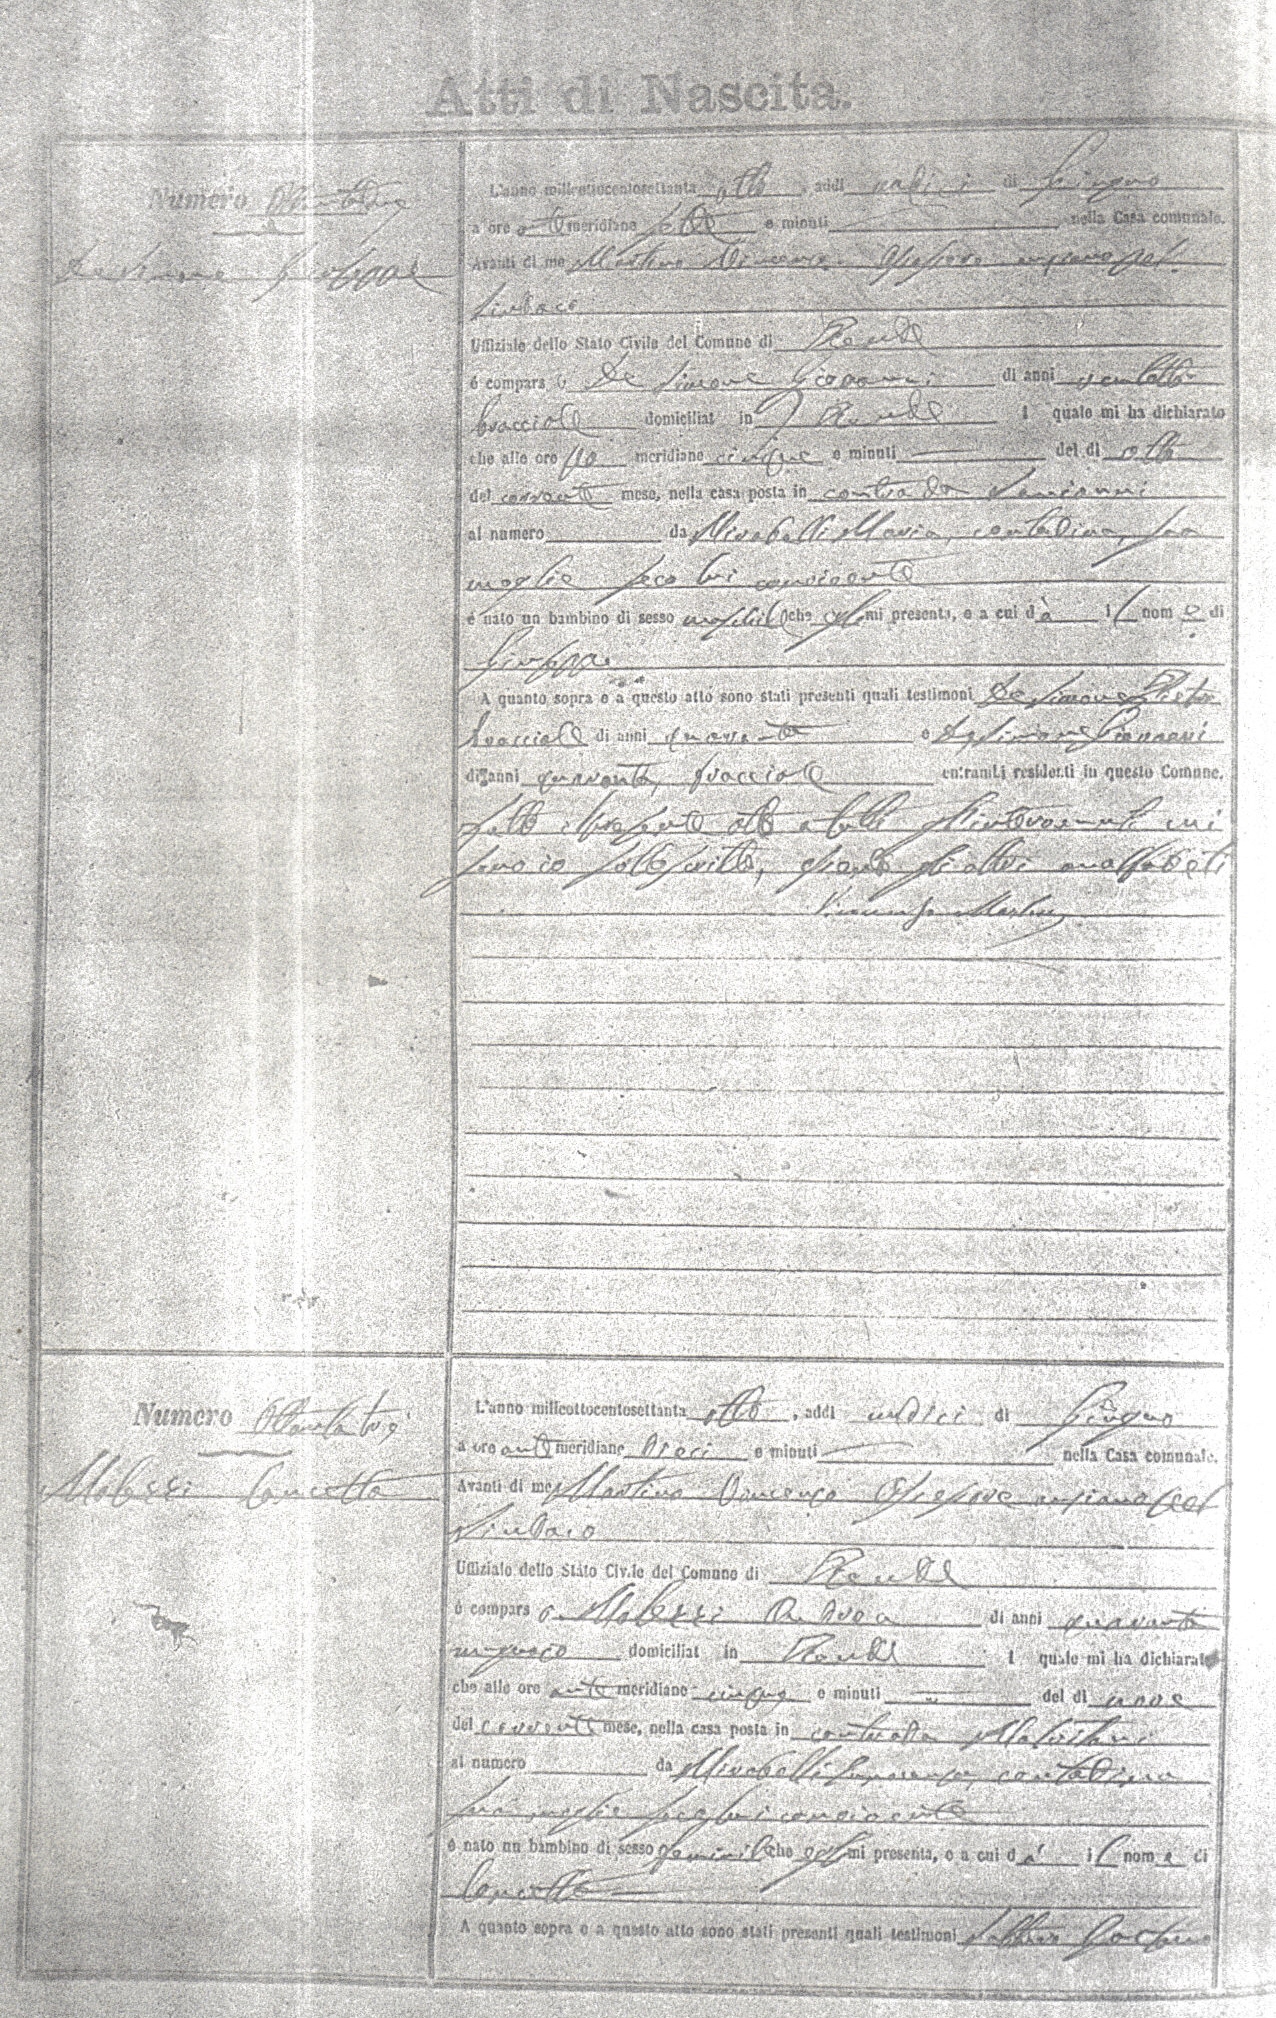 Atti di Nascita.
Numero Ottantadue
De Simone Giuseppe
L'anno milleottocentosettanta otto, addì undici di Giugno
a ore antemeridiane sette e minuti nella Casa comunale.
Avanti di me Martino Vincenzo Assessore anziano pel
Sindaco
Uffiziale dello Stato Civile del Comune di Rende
è comparso De Simone Giovanni di anni ventotto
bracciale domiciliat in Rende l quale mi ha dichiarato
che alle ore po meridiane cinque e minuti del dì otto
del corrente mese, nella casa posta in contrada
al numero da Mirabelli Maria, contadina, sua
moglie seco lui convivente
è nato un bambino di sesso maschile che egli mi presenta, e a cui dà il nome di
Giuseppe
A quanto sopra e a questo atto sono stati presenti quali testimoni De Simone
bracciale di anni quaranta e De Simone Giovanni
di anni quaranta, bracciale entrambi residenti in questo Comune.
Letto il presente atto a tutti gl'intervenuti, mi
sono io sottoscritto, essendo gli altri analfabeti
Vincenzo Martino
Numero Ottantatre
Malizzi Concetta
L'anno milleottocentosettanta otto, addì undici di Giugno
a ore antemeridiane dieci e minuti nella Casa comunale.
Avanti di me Martino Vincenzo Assessore anziano pel
Sindaco
Uffiziale dello Stato Civile del Comune di Rende
è comparso Malizzi Andrea di anni quaranta
domiciliat in Rende l quale mi ha dichiarato
che alle ore antemeridiane cinque e minuti del dì nove
del corrente mese, nella casa posta in contrada
al numero da Mirabelli contadina
sua moglie seco lui convivente
è nato un bambino di sesso feminile che egli mi presenta, e a cui dà il nome di
Concetta
A quanto sopra e a questo atto sono stati presenti quali testimoni